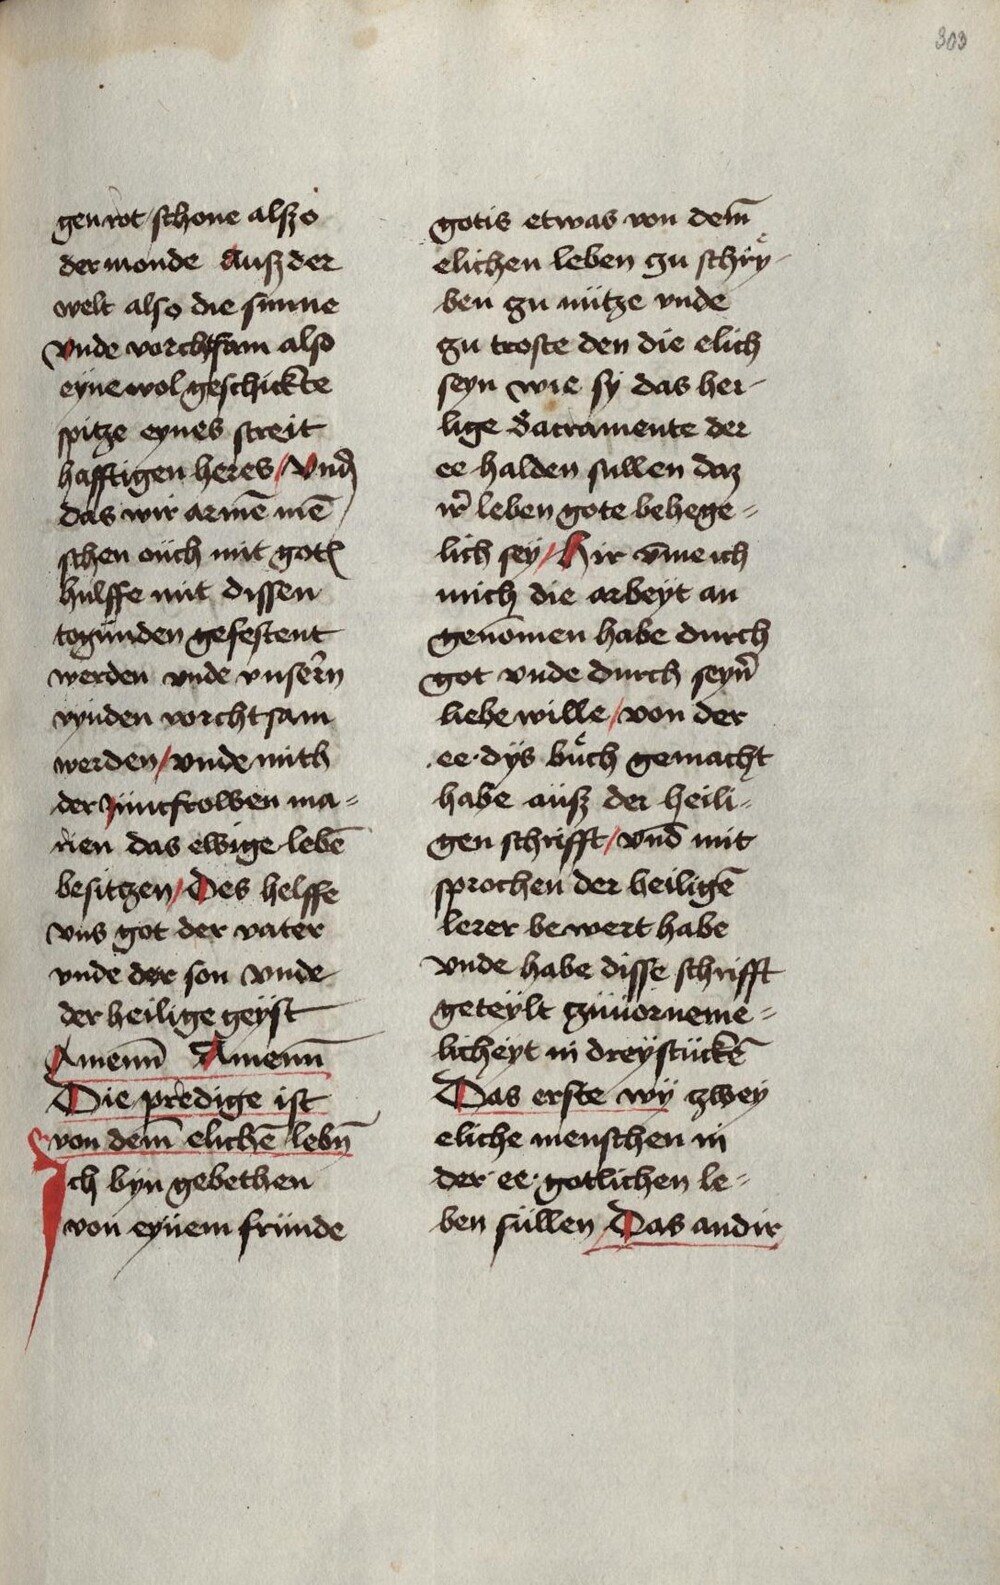 303
gen rot / schone alszo
der monde Ausz der
welt also die sunne
vnde vorchtsam also
eyne wol geschickte
spitze eynes streit
hafftigen heres / Vnd
das wir armē mē
schen ouch mit gotꝭ
hulffe mit dissen
togunden gefestent
werden vnde vnsern̄
vynden vorchtsam
werden / vnde mith
der Juncfrowen ma-
rien das ewige lebē
besitzen / Des helffe
vns got der vater
vnde der son vnde
der heilige geyst
Amenn̄ Amenn̄
Die predige ist
von dem̄ elichē lebn̄
Ich byn gebethen
von eynem frunde
gotis etwas von dem̄
elichen leben zu schry-
ben zu nütze vnde
zu troste den die elich
seyn wie sy das hei-
lige Sacramente der
ee halden sullen daz
ir̄ leben gote behege-
lich sey / Hir v̄me ich
mich die arbeyt an
genōmen habe durch
got vnde durch seyn̄
liebe wille / von der
ee dys büch gemacht
habe ausz der heili-
gen schrifft / vnd̄ mit
sprochen der heiligē
lerer bewert habe
vnde habe disse schrifft
geteylt czuuorneme-
licheyt in drey stückē
Das erste wy zwey
eliche menschen in
der ee gotlichen le-
ben süllen / Das andir